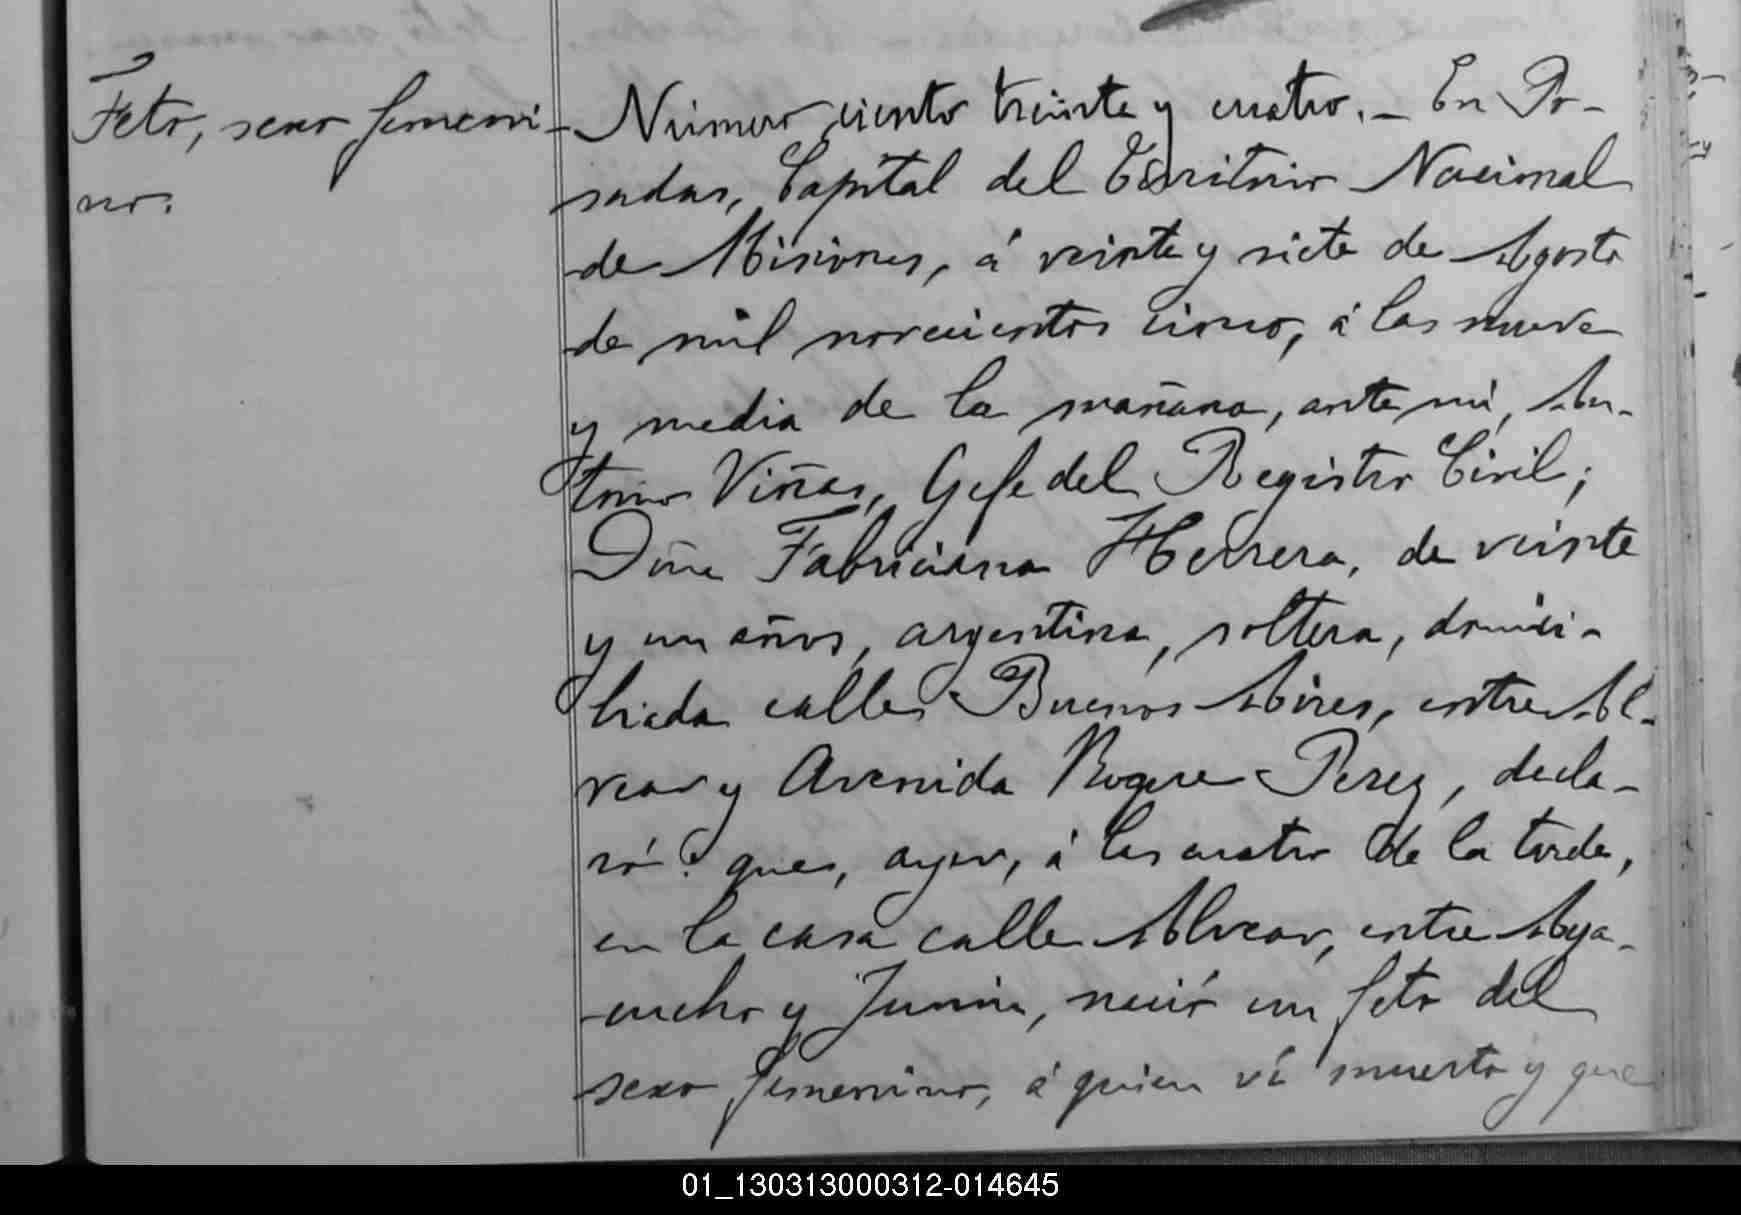 Feto, sexo femeni-
no.
Número ciento treinta y cuatro.- En Po-
sadas, Capital del Territorio Nacional
de Misiones, á veinte y siete de Agosto
de mil novecientos cinco, á las nueve
y media de la mañana, ante mí, An-
tonio Viñas, Gefe del Registro Civil;
Doña Fabriciana Herrera, de veinte
y un años, argentina, soltera, domici-
liada calle Buenos Aires, entre Al-
vear y Avenida Roque Perez, decla-
ró: que, ayer, á las cuatro de la tarde,
en la casa calle Alvear, entre Aya-
cucho y Junin, nació un feto del
sexo femenino, á quien ví muerto y que
01_130313000312-014645